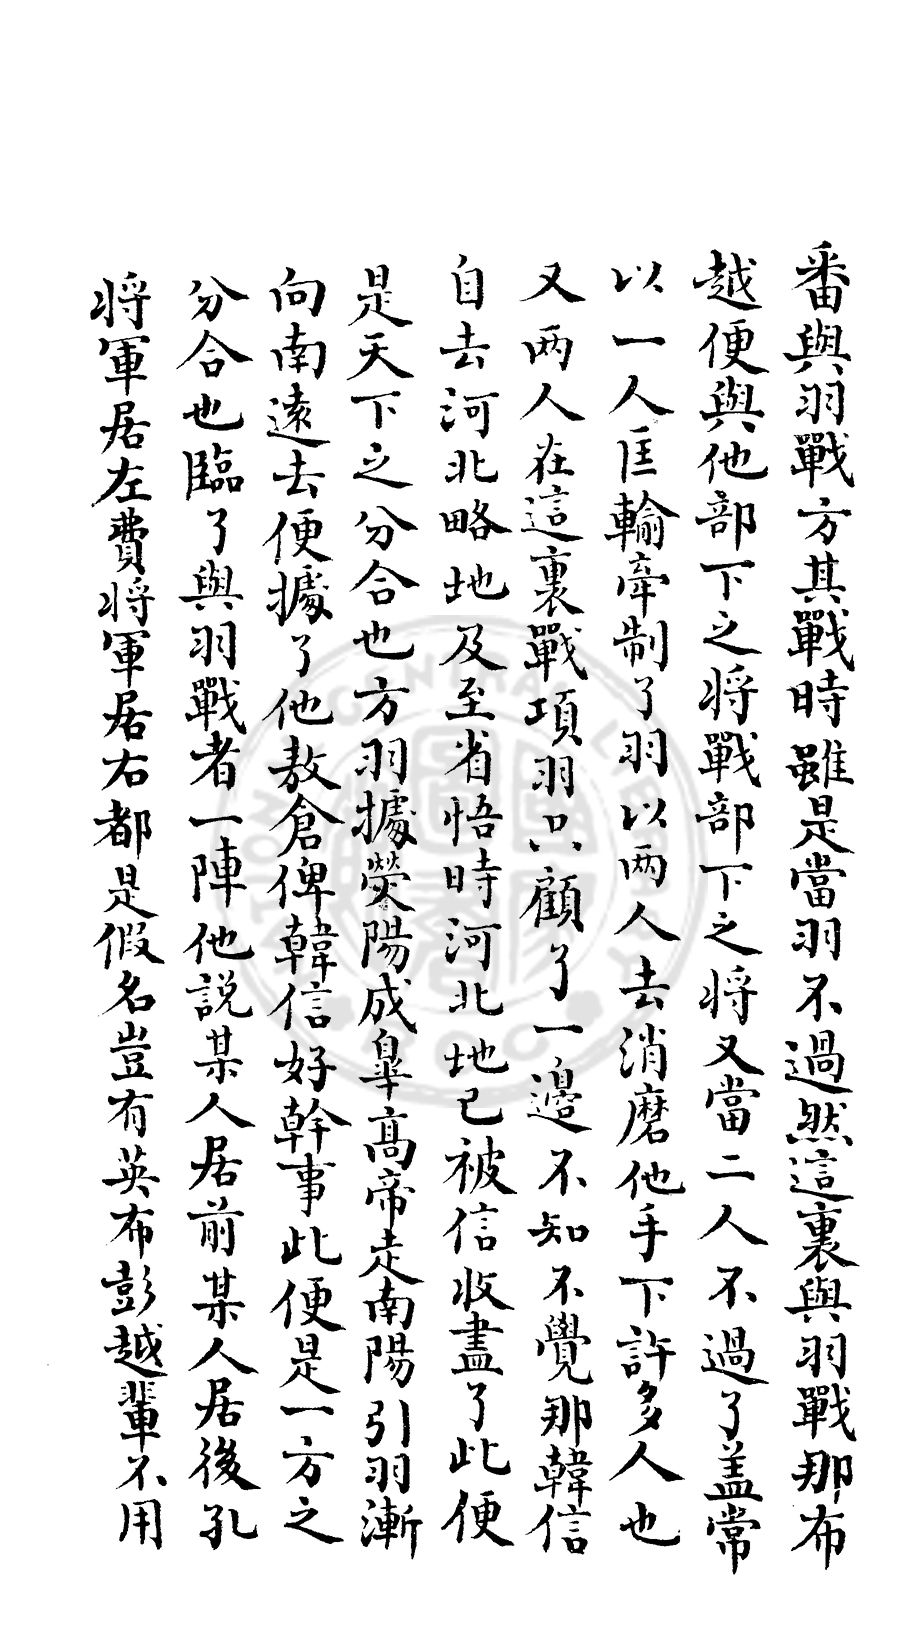 番與羽戰方其戰時雖是當羽不過然這裏與羽戰那布
越便與他部下之将戰部下之将又當二人不過了盖常
以一人匡輸牽制了羽以两人去消磨他手下許多人也
又两人在這裏戰項羽只顧了一邉不知不覺那韓信
自去河北略地及至省悟時河北地已被信收盡了此便
是天下之分合也方羽據滎陽成皐高帝走南陽引羽漸
向南遠去便據了他敖倉俾韓信好幹事此便是一方之
分合也臨了與羽戰者一陣他説某人居前某人居後孔
将軍居左費将軍居右都是假名豈有英布彭越輩不用
NATIONAL CENTRAL LIBRARY